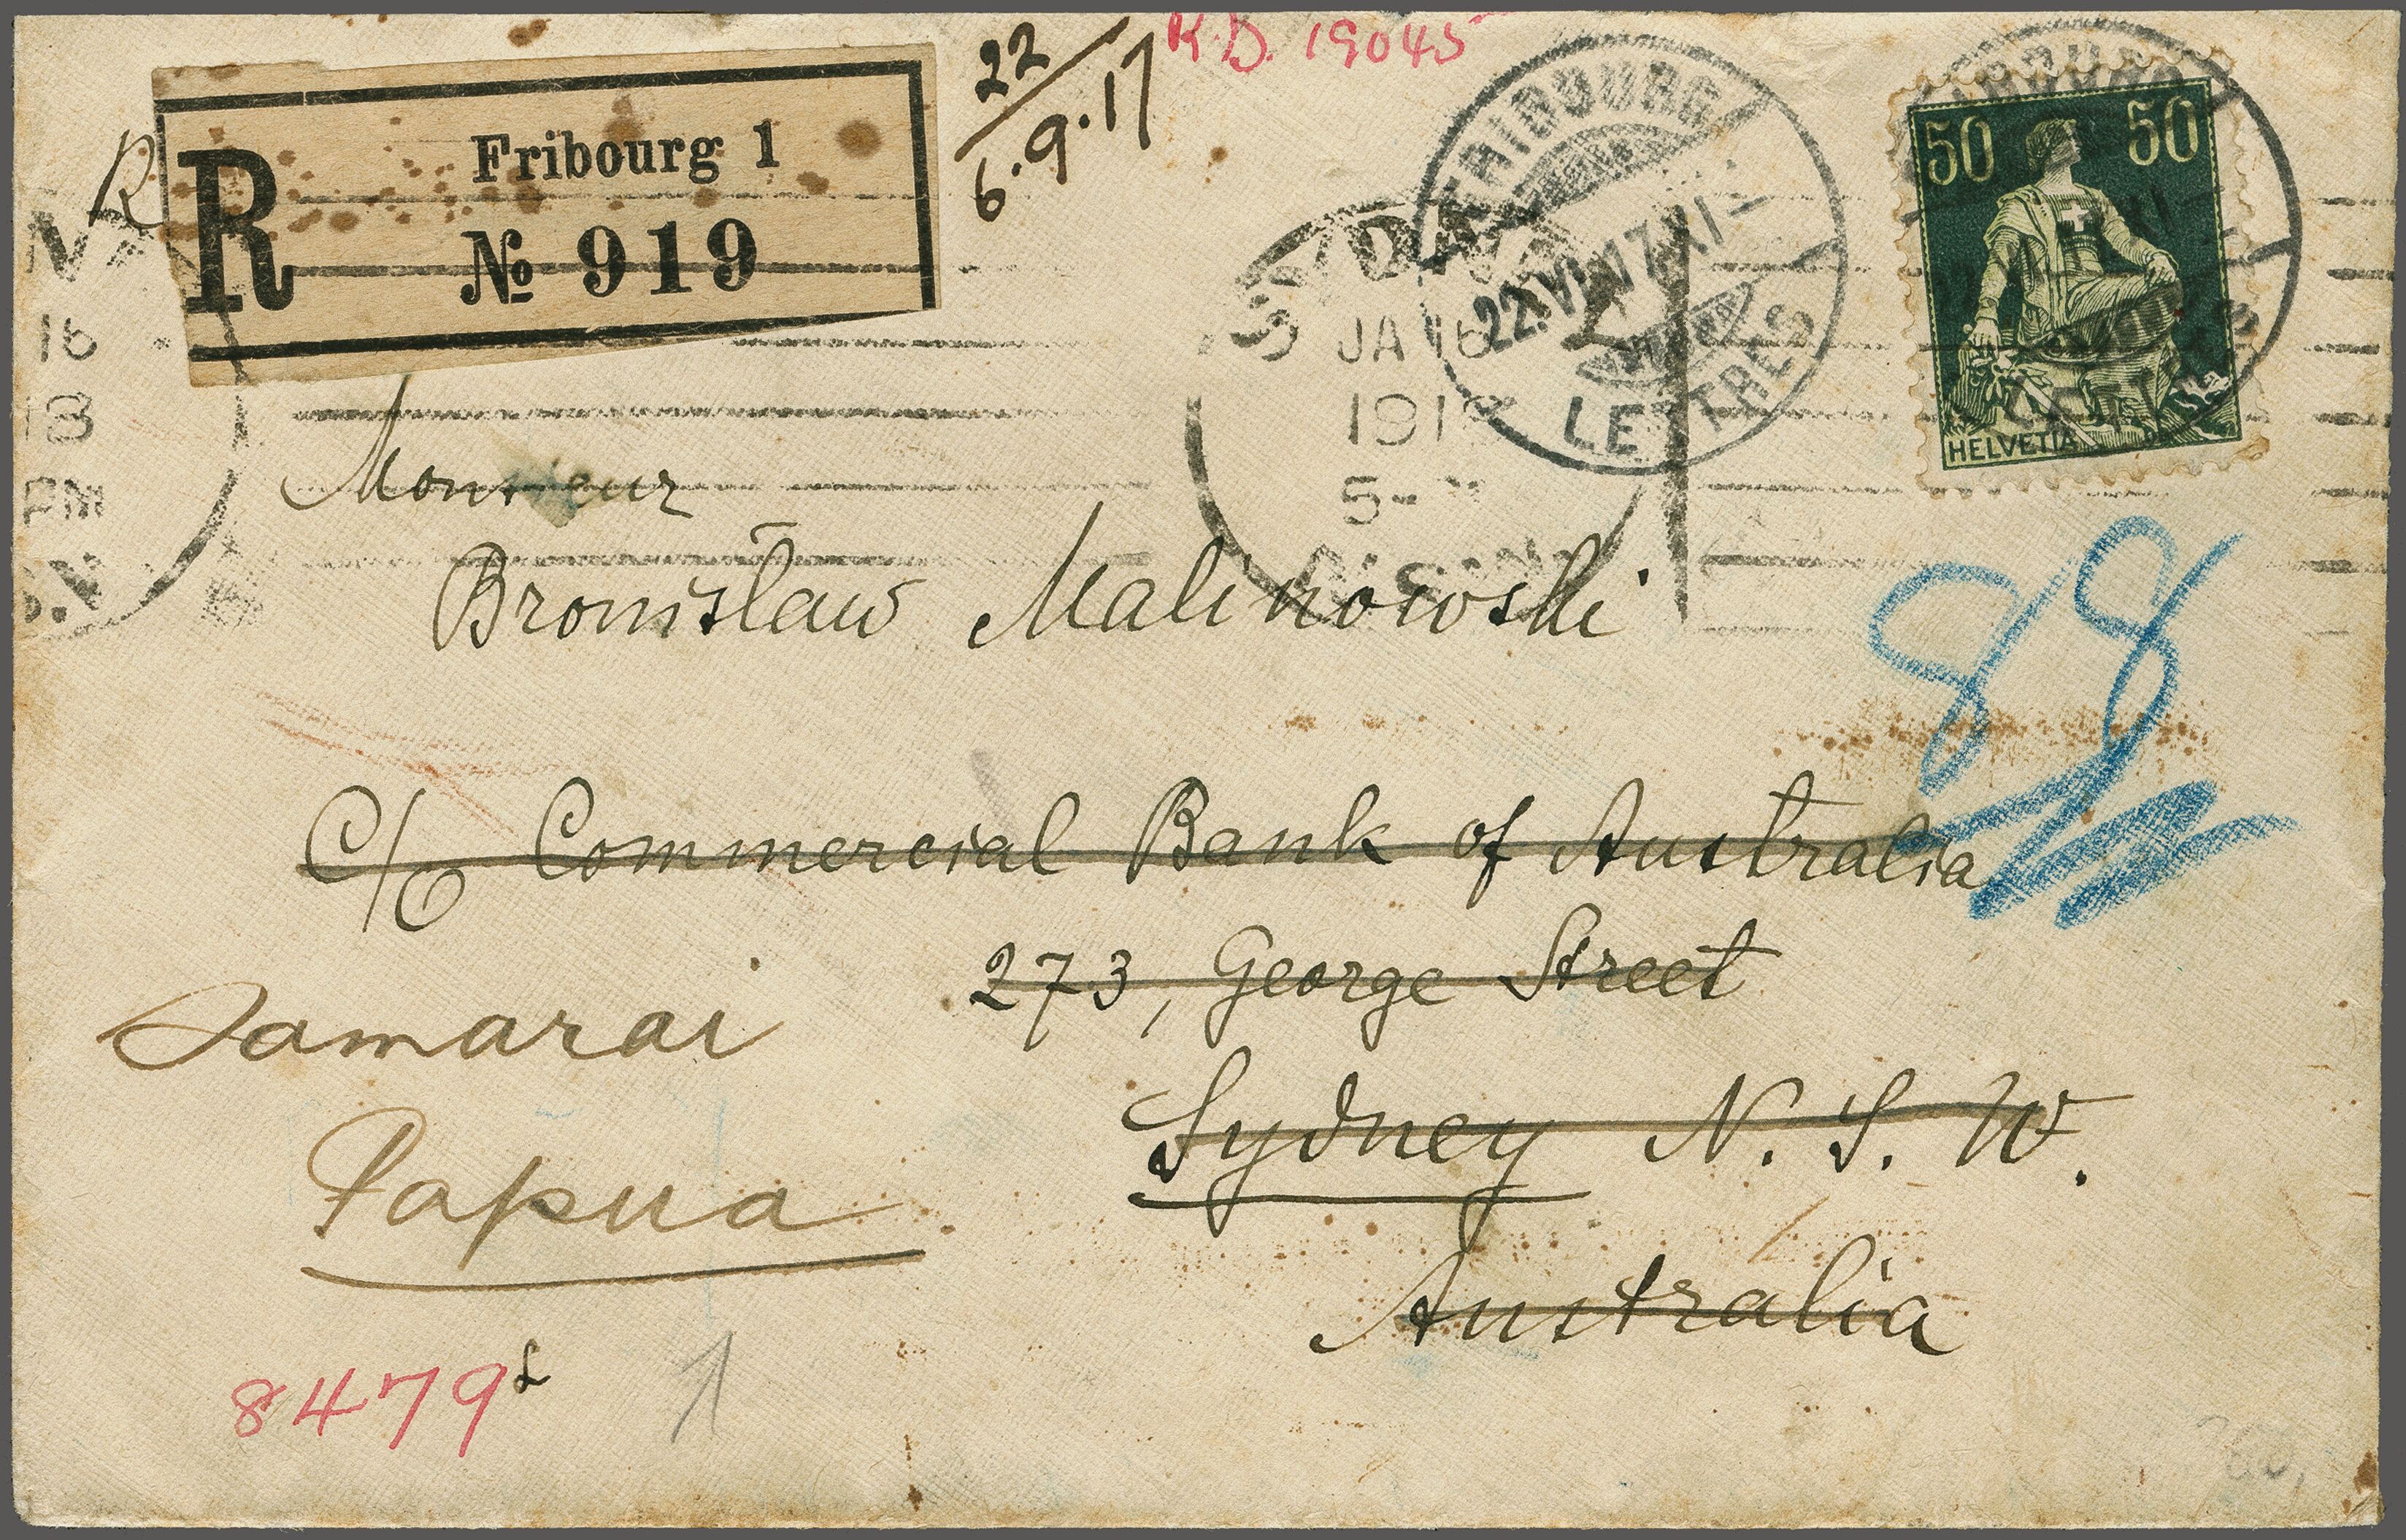 R
Fribourg 1
R
№ 919
22
6.9.17
R.D. 19045
FRIBOURG
22.VI.17.XI
LETTRES
SYDNEY
JA 16
5-
50 50
HELVETIA
16
18
PM
Monsieur
Bronisław Malinowski
88
C/o Commercial Bank of Australia
273, George Street
Sydney N. S. W.
Australia
Samarai
Papua
8479
1